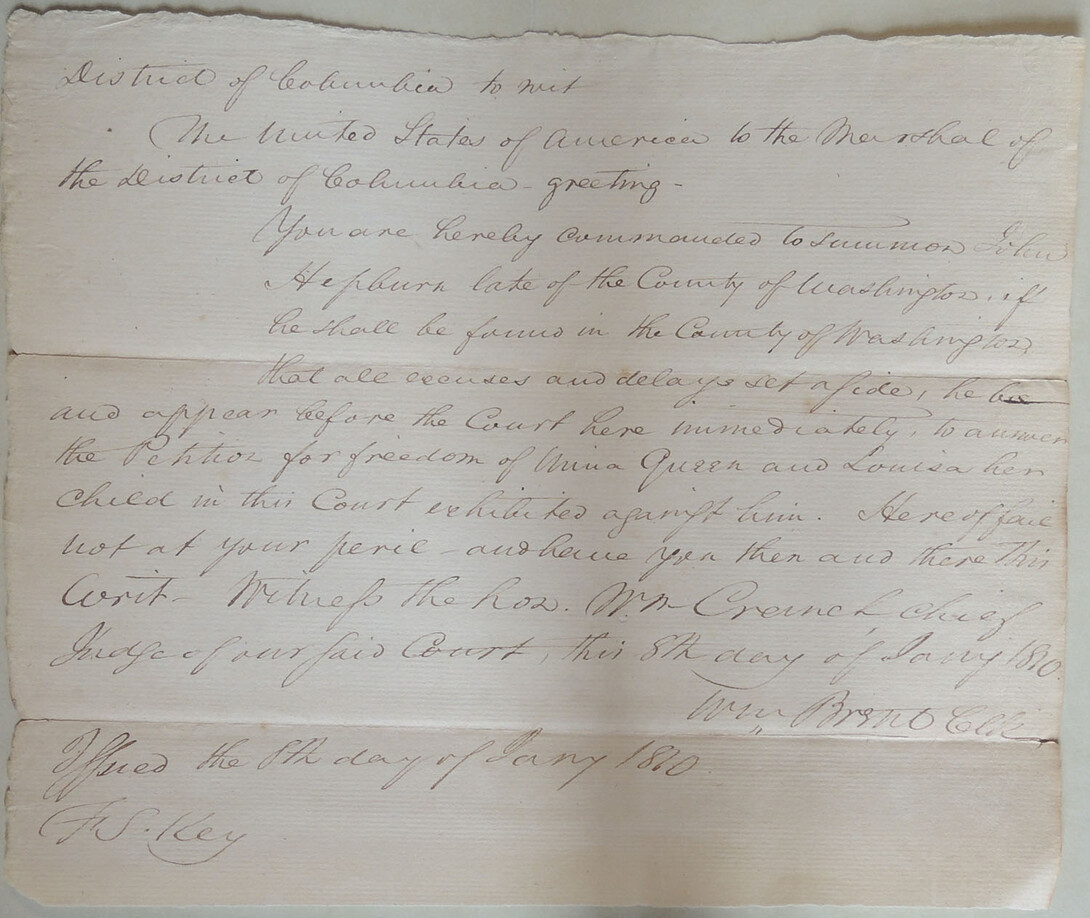 District of Columbia to wit
The United States of America to the Marshal of
the District of Columbia - greeting -
You are hereby commanded to summon John
Hepburn late of the County of Washington, if
he shall be found in the County of Washington,
that all excuses and delays set aside, he be
and appear before the Court here immediately, to answer
the Petition for freedom of Mina Queen and Louisa her
child in this Court exhibited against him. Hereof fail
not at your peril - and have you then and there this
Writ - Witness the hon. Wm Cranch, chief
Judge of our said Court, this 8th day of Jany 1810.
Wm Brent Clk
Issued the 8th day of Jany 1810
F. S. Key